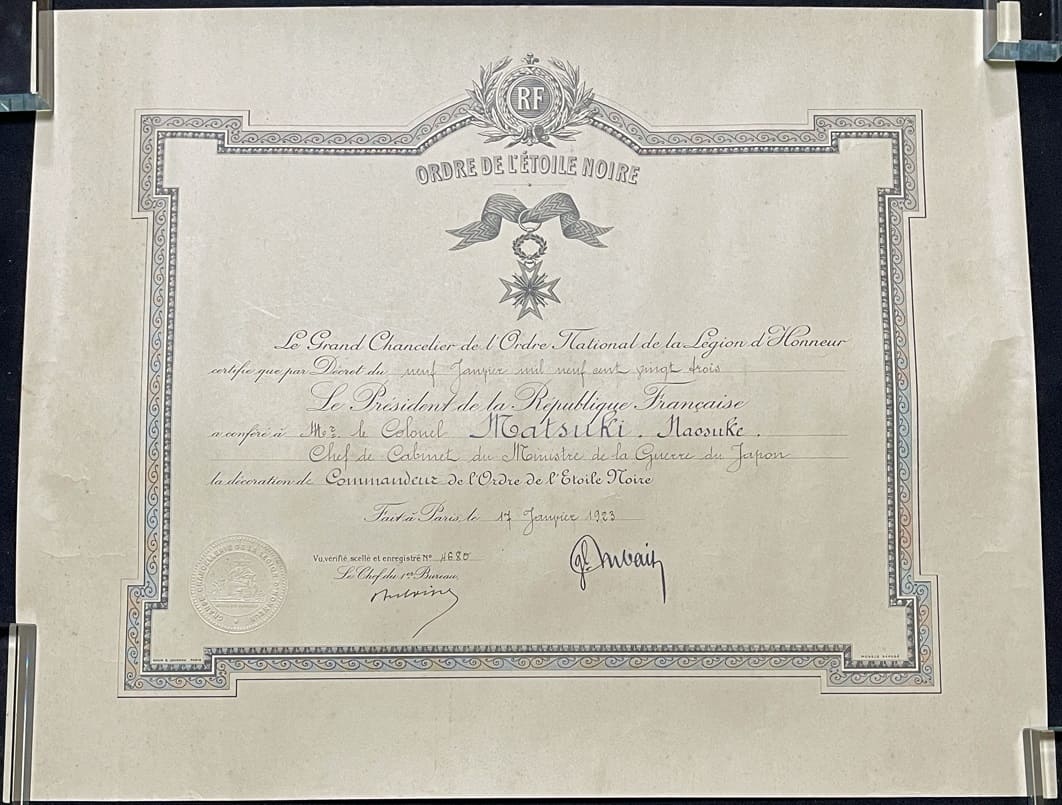 RF
ORDRE DE L'ÉTOILE NOIRE
Le Grand Chancelier de l'Ordre National de la Légion d'Honneur
certifie que par Décret du neuf Janvier mil neuf cent vingt trois
Le Président de la République Française
a conféré à Mr. le Colonel Matsuki. Naosuke.
Chef de Cabinet du Ministre de la Guerre du Japon
la décoration de Commandeur de l'Ordre de l'Etoile Noire
Fait à Paris, le 17 Janvier 1923
Vu, vérifié, scellé et enregistré No 4680
Le Chef du 1er Bureau,
GRANDE CHANCELLERIE DE LA LEGION D'HONNEUR
MODELE DEPOSE